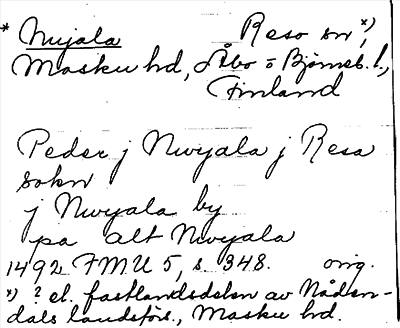 * Nujala Reso sn *),
Masku hd, Åbo o Björneb. l.,
Finland
Peder j Nwyala j Resa
sokn
j Nwyala by
pa alt Nwyala
1492 FMU 5, s. 348. orig.
*) ? el. fastlandsdelen av Nåden-
dals landsförs., Masku hd.